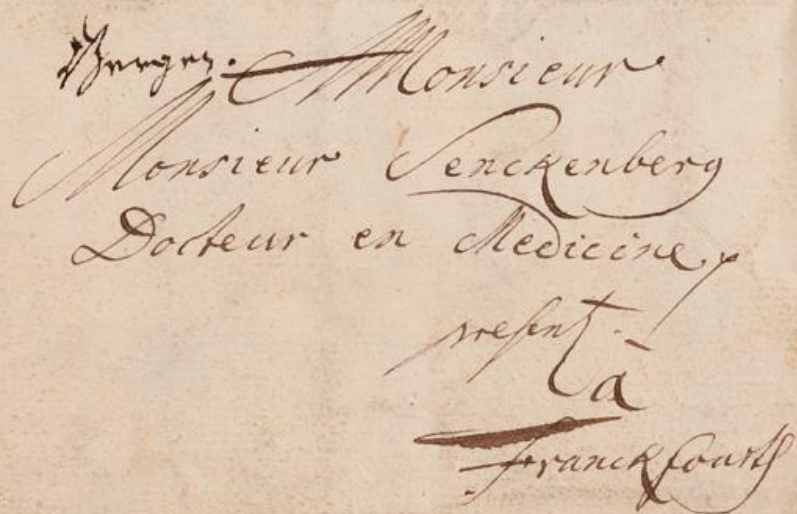 Berger. Monsieur
Monsieur Senckenberg
Docteur en Medicine,
present.
à
Franckfourth